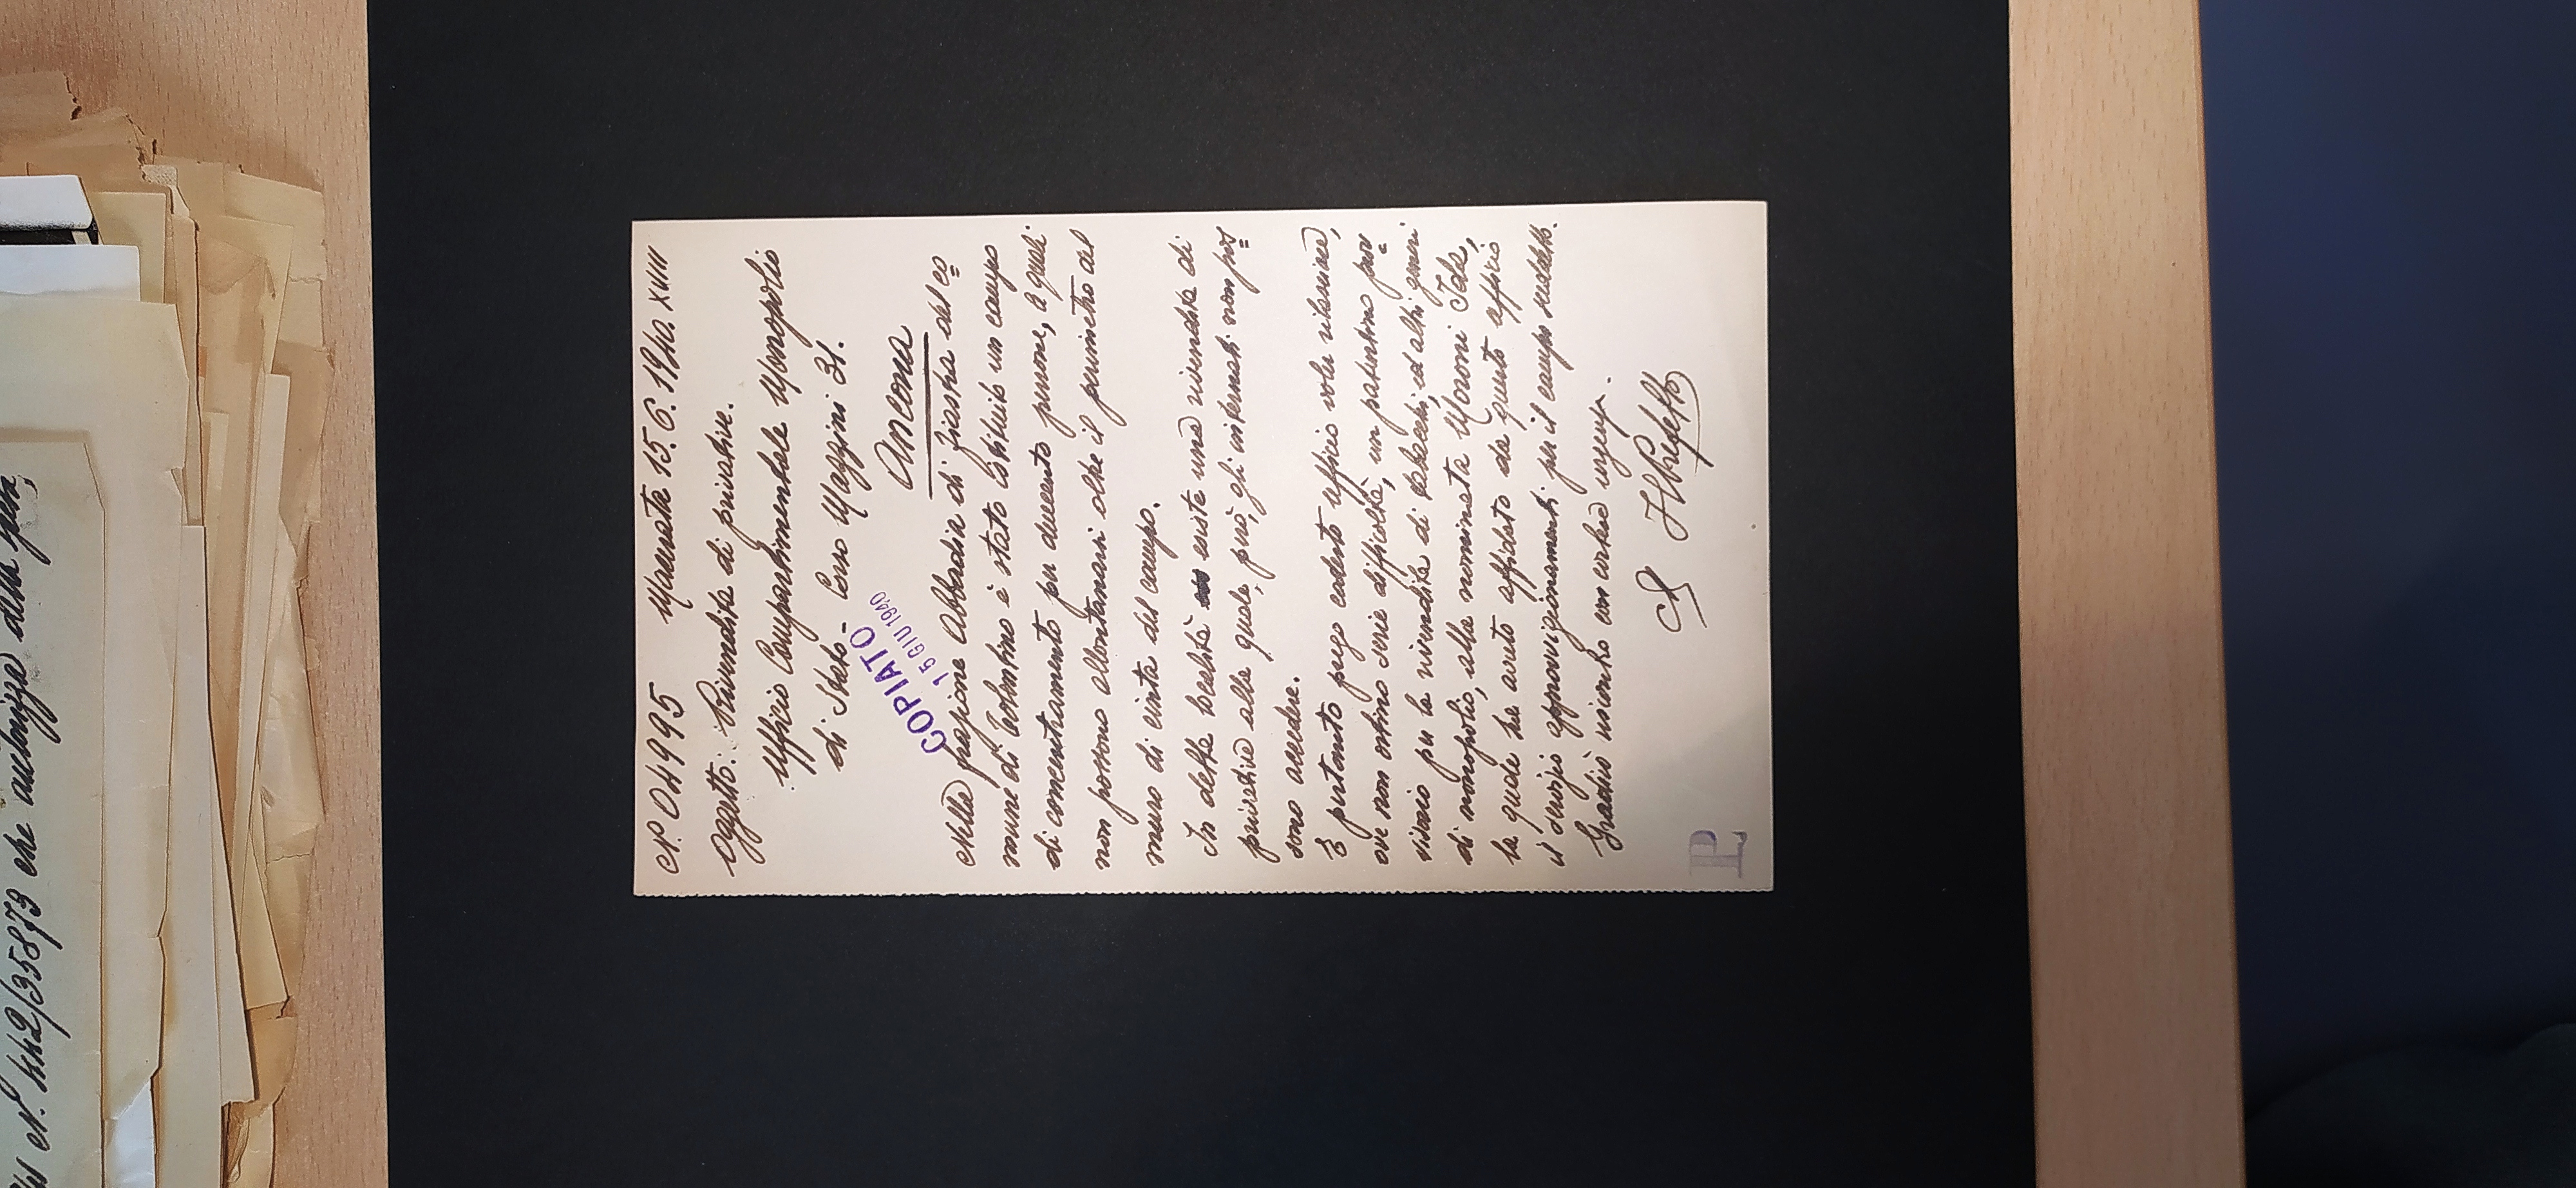 N. 442/35873 che autorizza detta spesa,
N. 04995 Macerata 15.6.1940. XVIII
Oggetto: Rivendita di privative.
Ufficio Compartimentale Monopolio
di Stato - Corso Mazzini 31.
COPIATO
15 GIU 1940
Ancona
Nella frazione Abbadia di Fiastra del co=
mune di Tolentino è stato istituito un campo
di concentramento per duecento persone, le quali
non possono allontanarsi oltre il perimetro del
muro di cinta del campo.
In detta località esiste una rivendita di
privative alla quale, però, gli internati non pos=
sono accedere.
E pertanto prego codesto Ufficio voler rilasciare,
ove non ostino serie difficoltà, un patentino prov=
visorio per la rivendita di tabacchi, ed altri generi
di monopolio, alla nominata Moroni Ida,
la quale ha avuto affidato da questo ufficio
il servizio approvvigionamenti per il campo suddetto.
Gradirò riscontro con cortese urgenza.
Il Prefetto
P